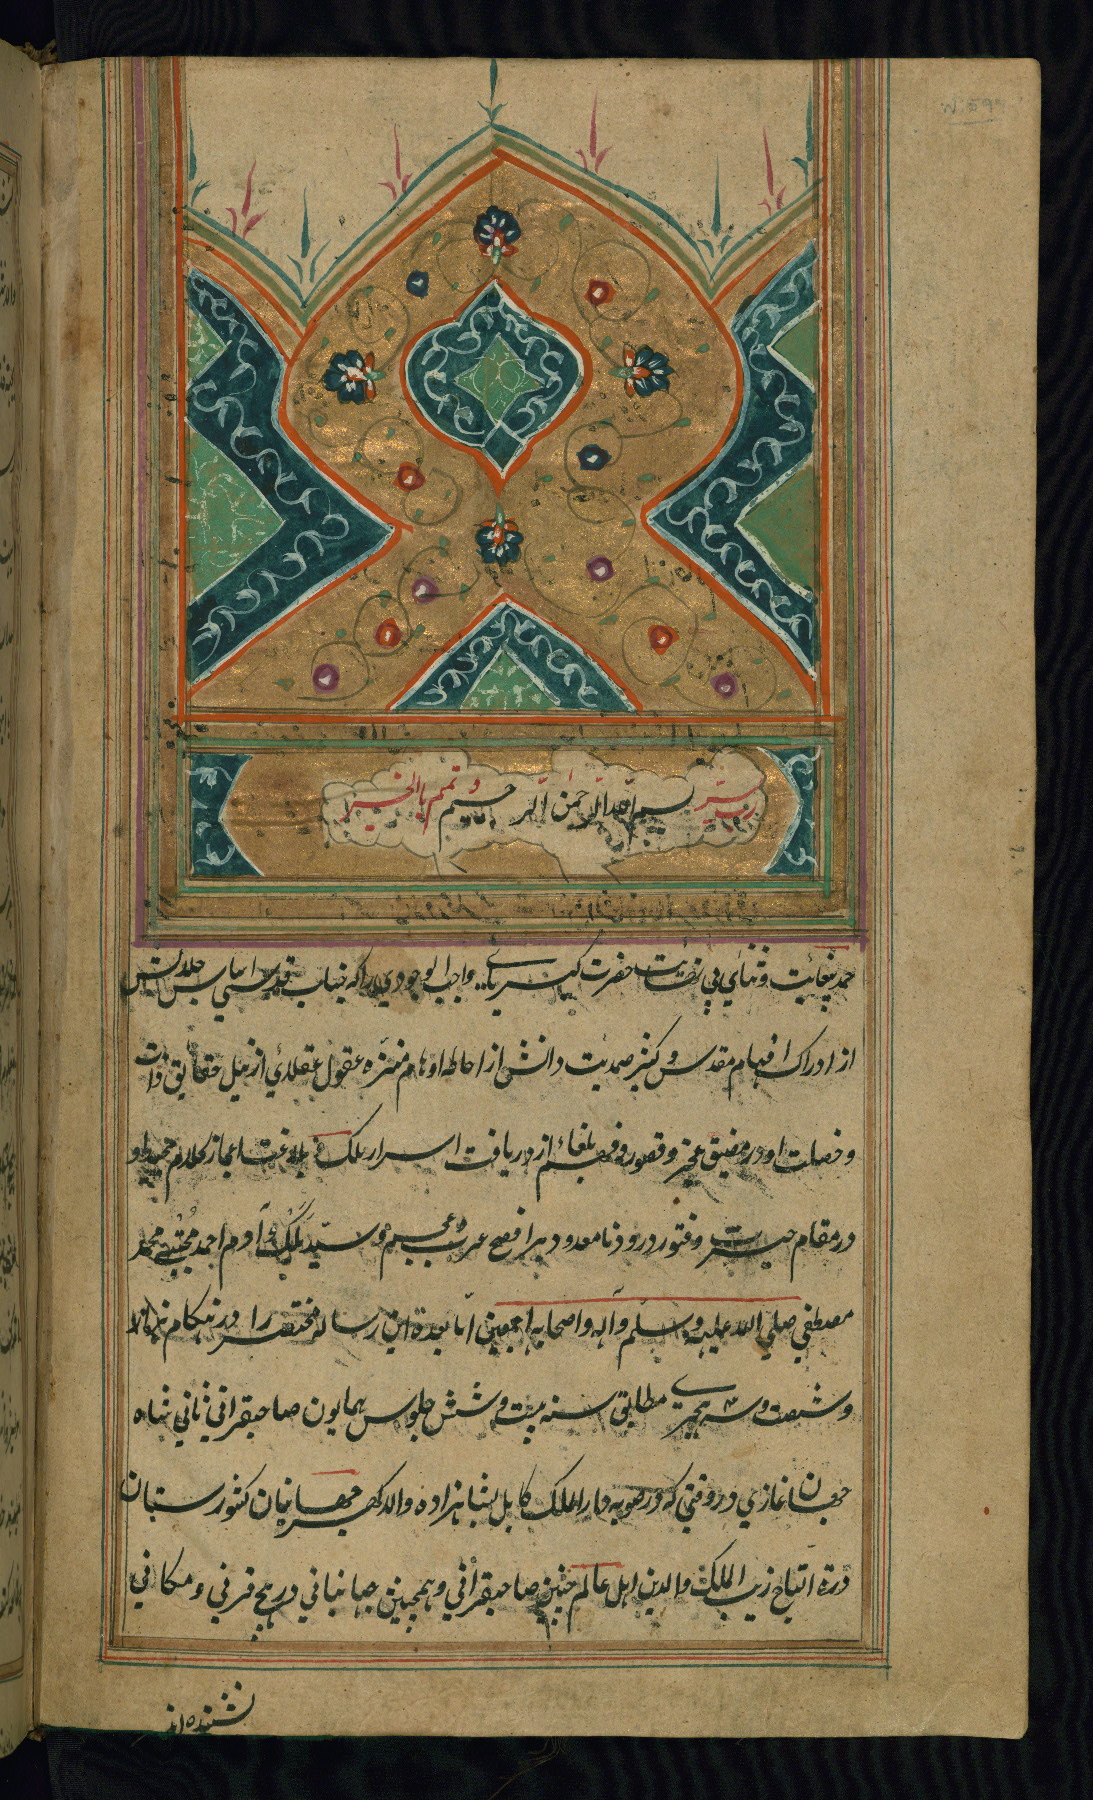 رب یسر بسم الله الرحمن الرحیم و تمم بالخیر
حمد بیغایت و ثنای بی نهایت حضرت کبریای واجب الوجودی را که جناب قدسی اساس جلالتش
از ادراک افهام مقدس و کبر صمدیت دانش از احاطه اوهام منزه عقول عقلای از نیل حقایق ذات
و صفات او در مضیق عجز و قصور و فهم بلغا از دریافت اسرار بلاغت اعجاز کلام حمید او
در مقام حیرت و فتور درود نامعدود بر افصح عرب و عجم و سید آدم احمد مجتبی محمد
مصطفی صلی الله علیه وسلم وآله واصحابه اجمعین اما بعد این رساله مختصر را در هنگام
و شصت و سه هجری مطابق سنه بیست و شش جلوس همایون صاحبقرانی ثانی شاه
جهان غازی در وقتی که در صوبه دارالملک کابل شاهزاده والا گهر جهانبان کشورستان
درة التاج زیب الملک والدین اهل عالم چنین صاحبقرانی و همچنین جهانبانی در هیچ قرنی و مکانی
نشنیده اند